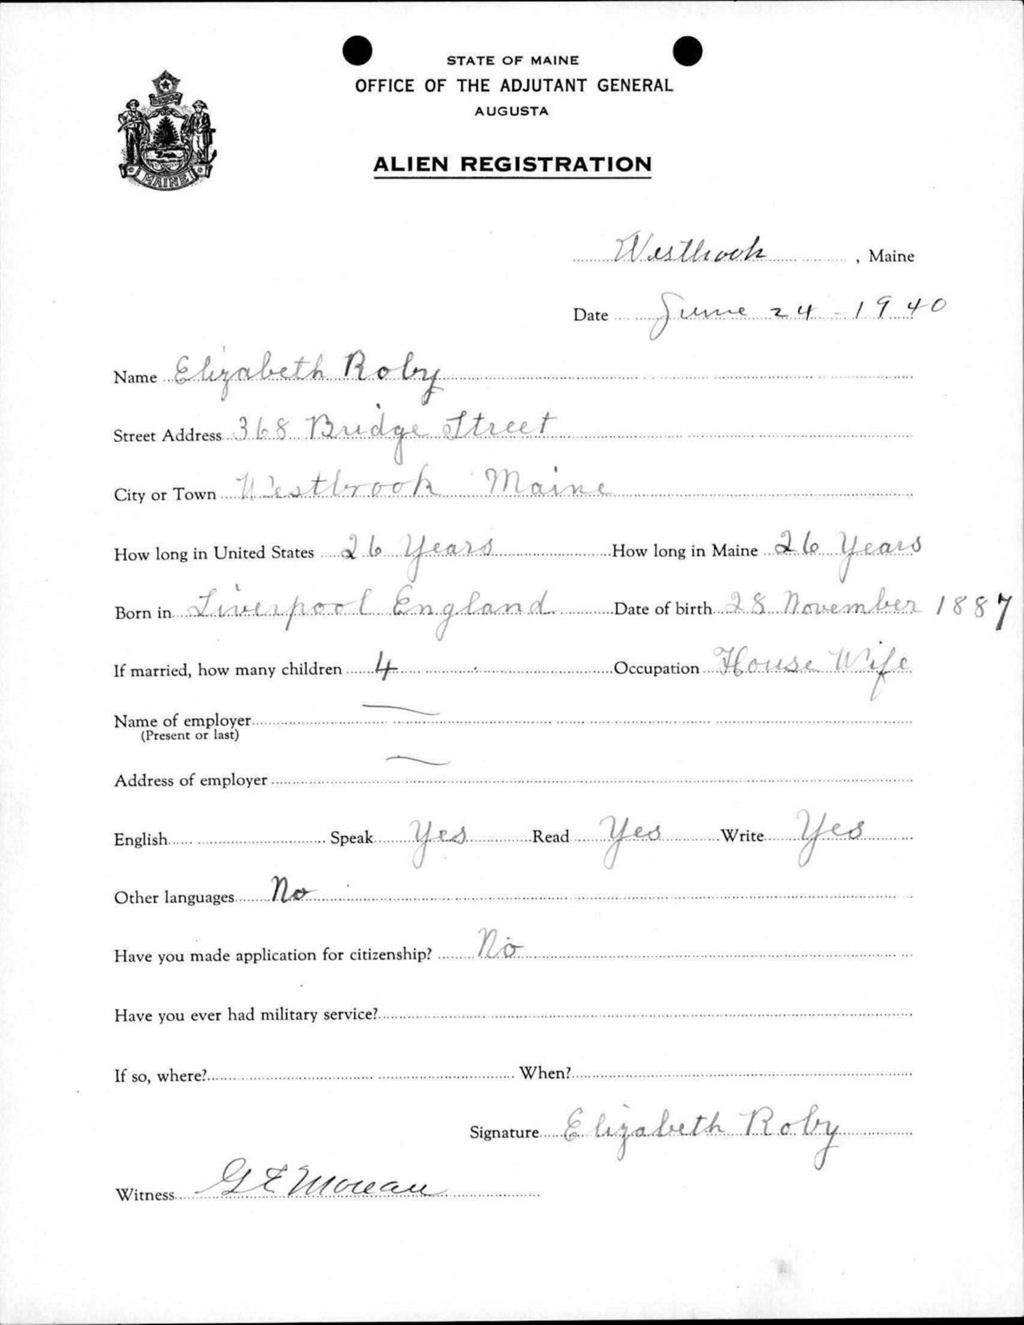 STATE OF MAINE
OFFICE OF THE ADJUTANT GENERAL
AUGUSTA
ALIEN REGISTRATION
MAINE
Westbrook, Maine
Date June 24 - 1940
Name Elizabeth Roby
Street Address 368 Bridge Street
City or Town Westbrook Maine
How long in United States 26 Years How long in Maine 26 Years
Born in Liverpool England Date of birth 28 November 1887
If married, how many children 4 Occupation House Wife
Name of employer —
(Present or last)
Address of employer —
English Speak Yes Read Yes Write Yes
Other languages No
Have you made application for citizenship? No
Have you ever had military service?
If so, where? When?
Signature Elizabeth Roby
Witness G E